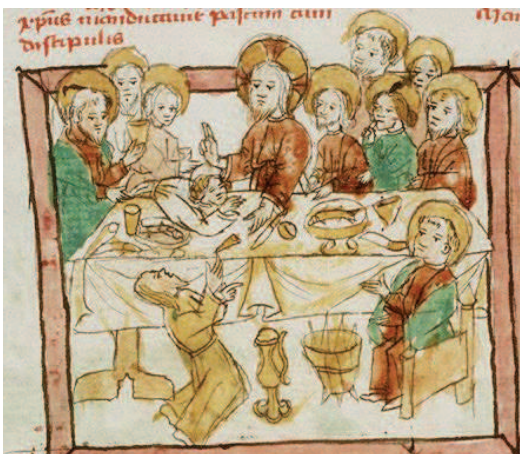 xp̄us manducauit pasca cum
discipulis